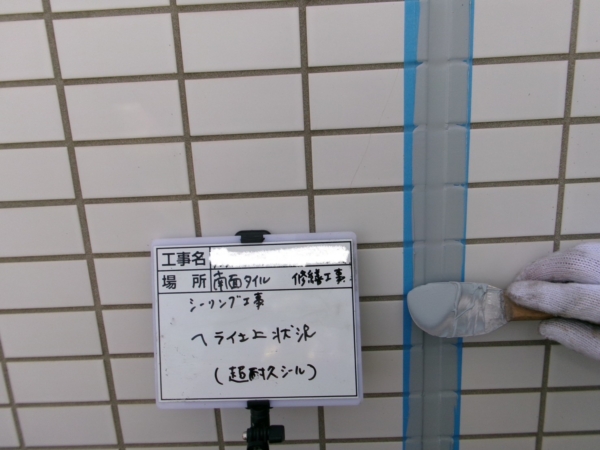 工事名
場 所 南面タイル 修繕工事
シーリング工事
ヘラ仕上状況
(超耐久シール)